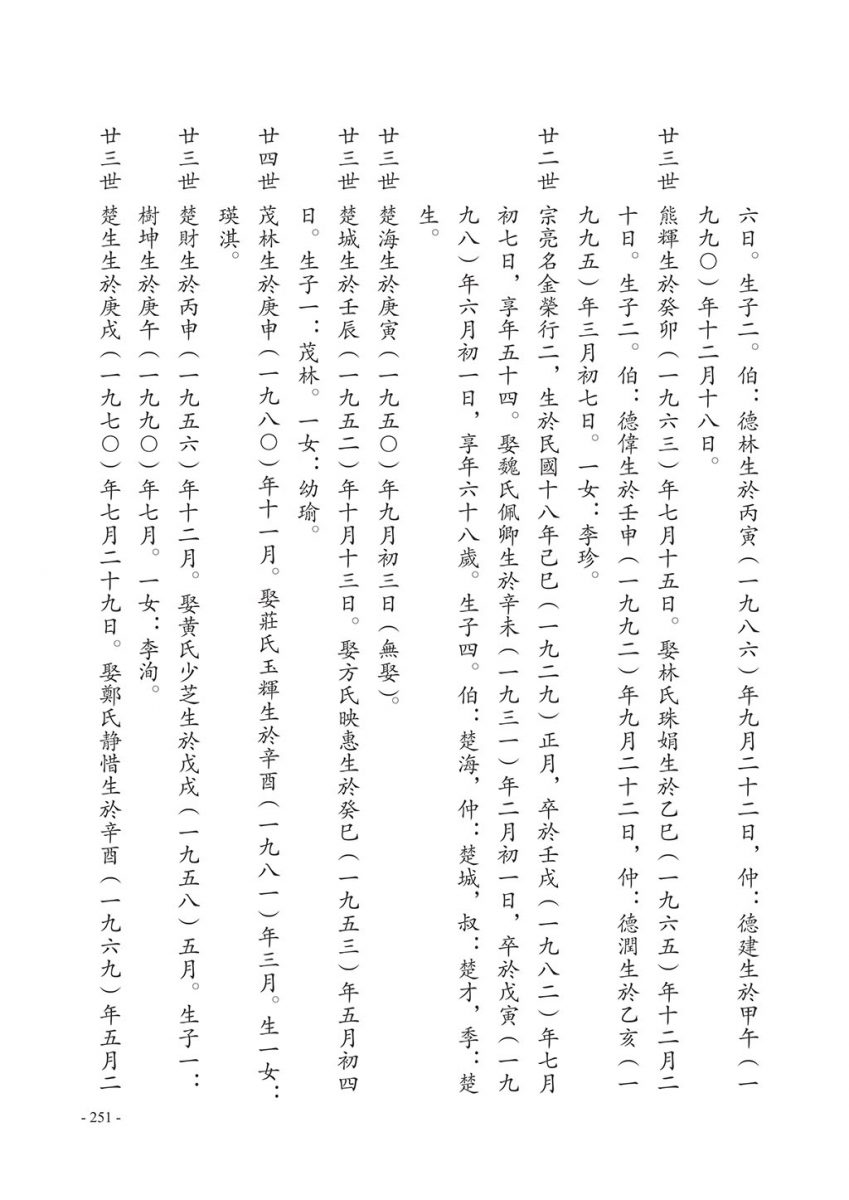 六日。生子二。伯：德林生於丙寅（一九八六）年九月二十二日，仲：德建生於甲午（一
九九〇）年十二月十八日。
廿三世　熊輝生於癸卯（一九六三）年七月十五日。娶林氏珠娟生於乙巳（一九六五）年十二月二
十日。生子二。伯：德偉生於壬申（一九九二）年九月二十二日，仲：德潤生於乙亥（一
九九五）年三月初七日。一女：李珍。
廿二世　宗亮名金榮行二，生於民國十八年己巳（一九二九）正月，卒於壬戌（一九八二）年七月
初七日，享年五十四。娶魏氏佩卿生於辛未（一九三一）年二月初一日，卒於戊寅（一九
九八）年六月初一日，享年六十八歲。生子四。伯：楚海，仲：楚城，叔：楚才，季：楚
生。
廿三世　楚海生於庚寅（一九五〇）年九月初三日（無娶）。
廿三世　楚城生於壬辰（一九五二）年十月十三日。娶方氏映惠生於癸巳（一九五三）年五月初四
日。生子一：茂林。一女：幼瑜。
廿四世　茂林生於庚申（一九八〇）年十一月。娶莊氏玉輝生於辛酉（一九八一）年三月。生一女：
瑛淇。
廿三世　楚財生於丙申（一九五六）年十二月。娶黃氏少芝生於戊戌（一九五八）五月。生子一：
樹坤生於庚午（一九九〇）年七月。一女：李洵。
廿三世　楚生生於庚戌（一九七〇）年七月二十九日。娶鄭氏静惜生於辛酉（一九六九）年五月二
- 251 -